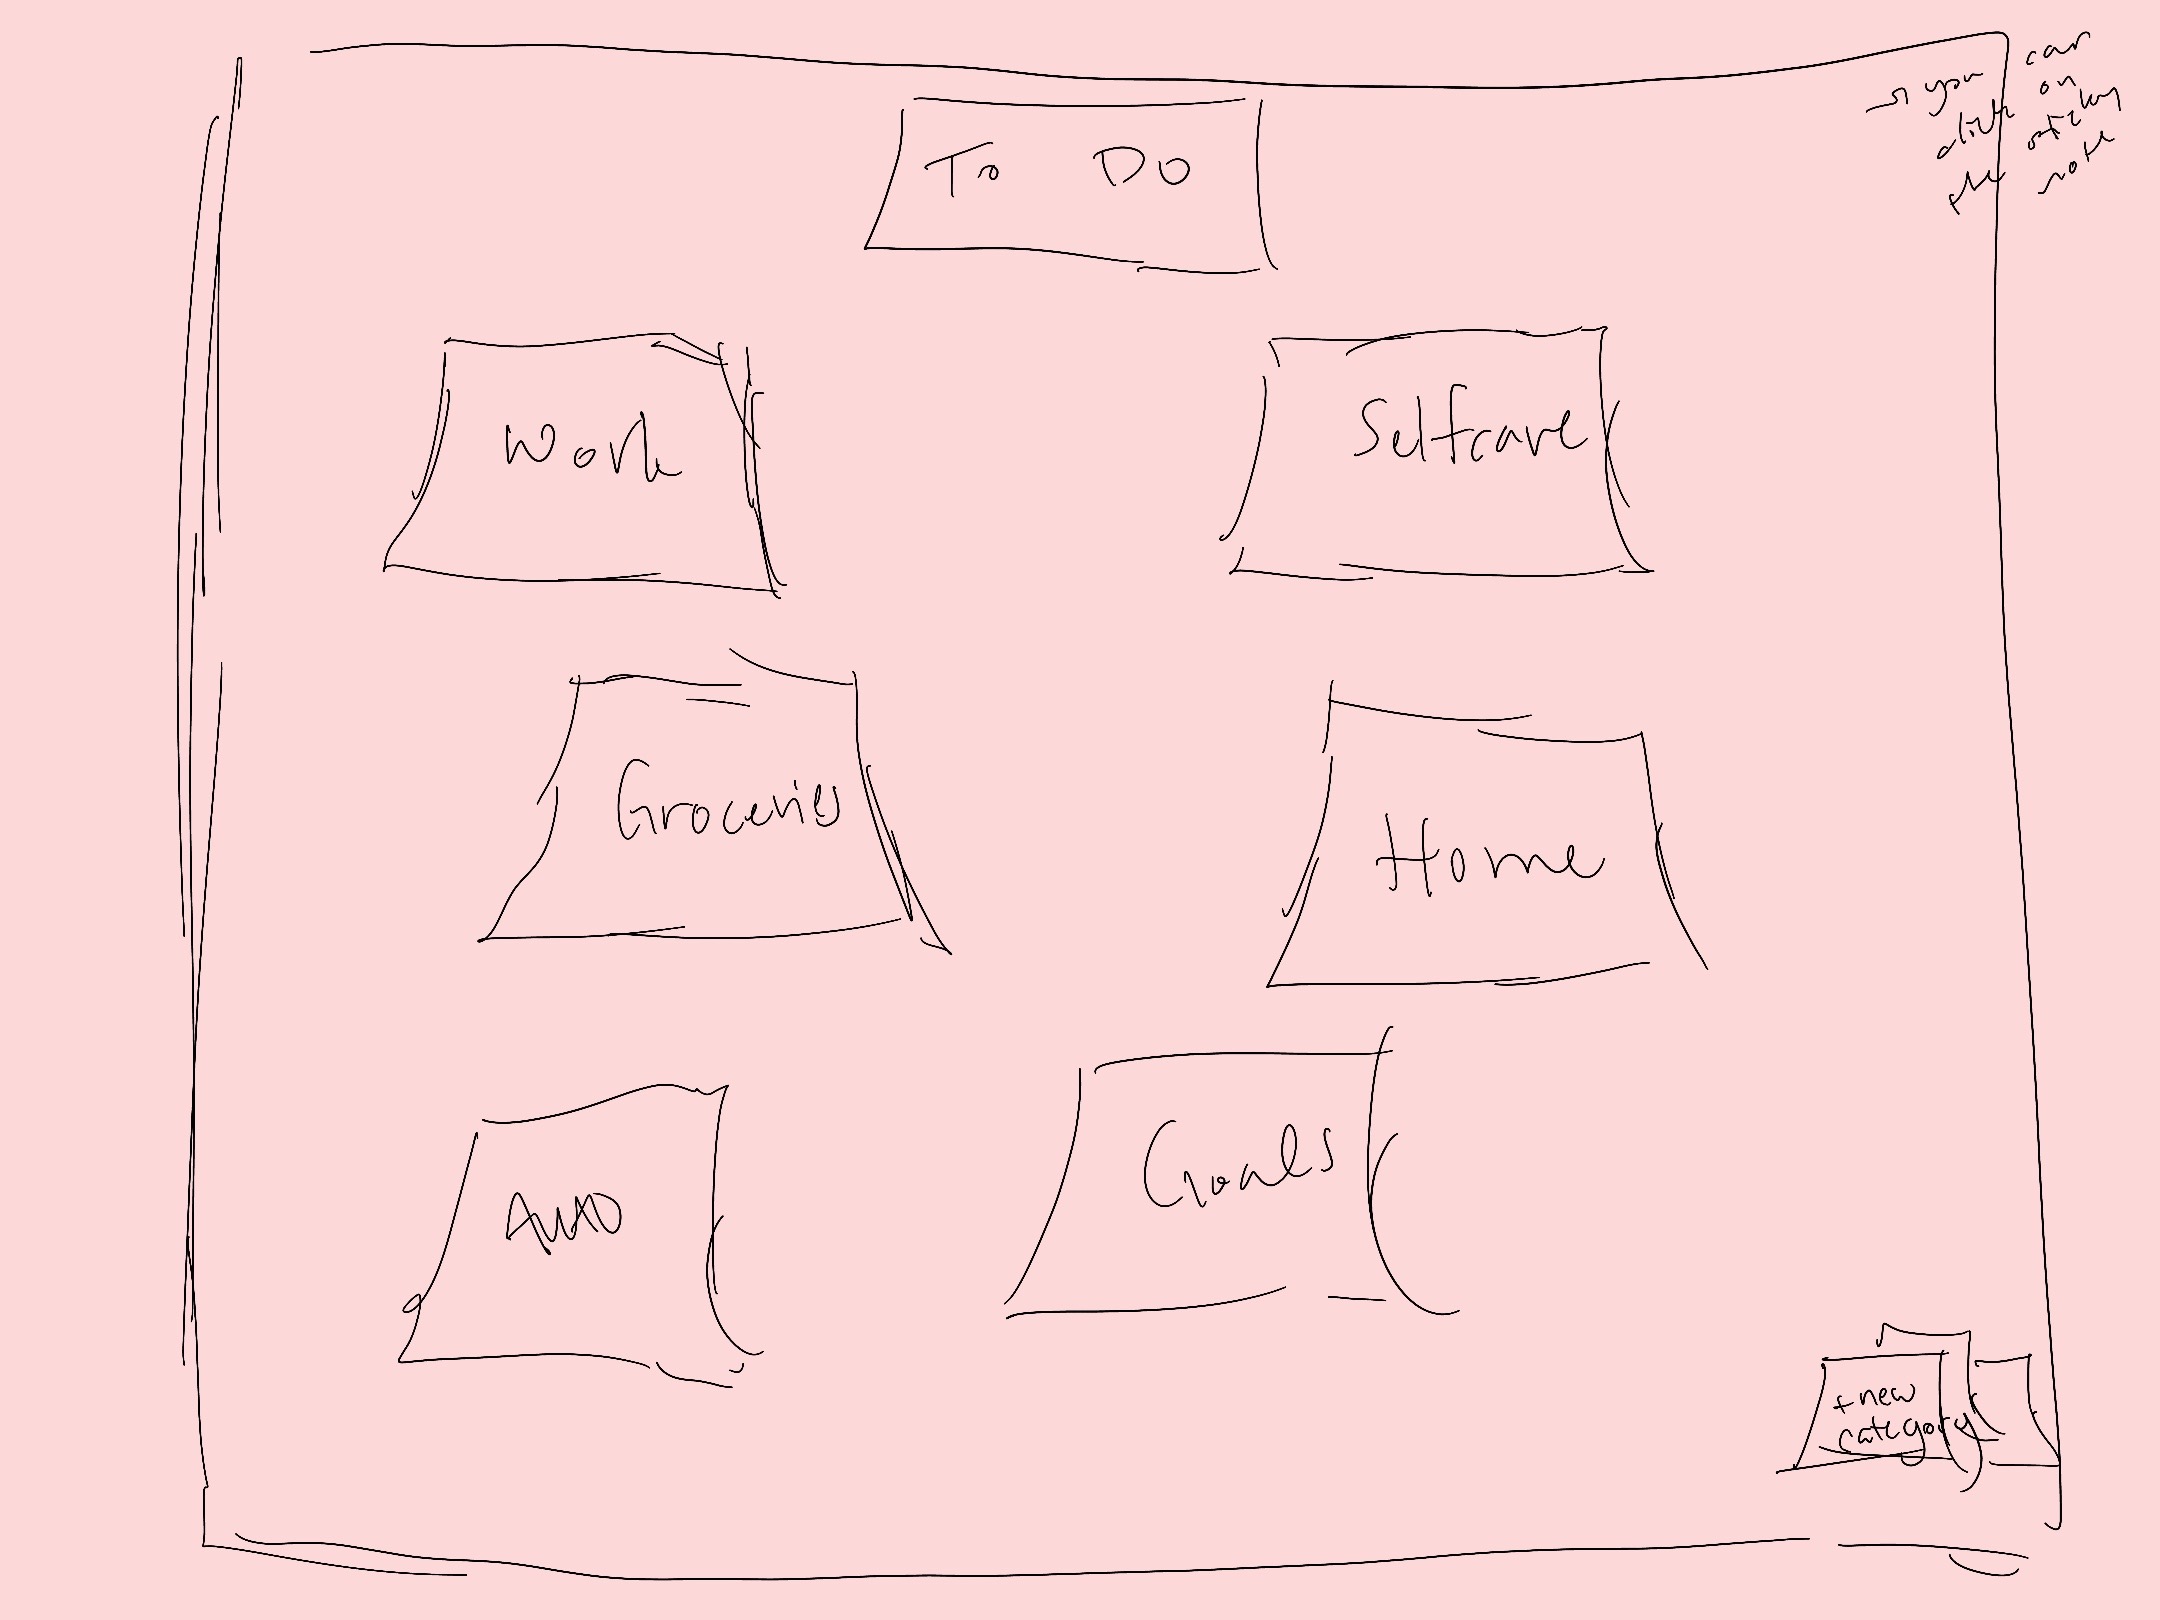 → you can
click on
the sticky
note
To DO
Work
Selfcare
Groceries
Home
Auto
Goals
+new
category